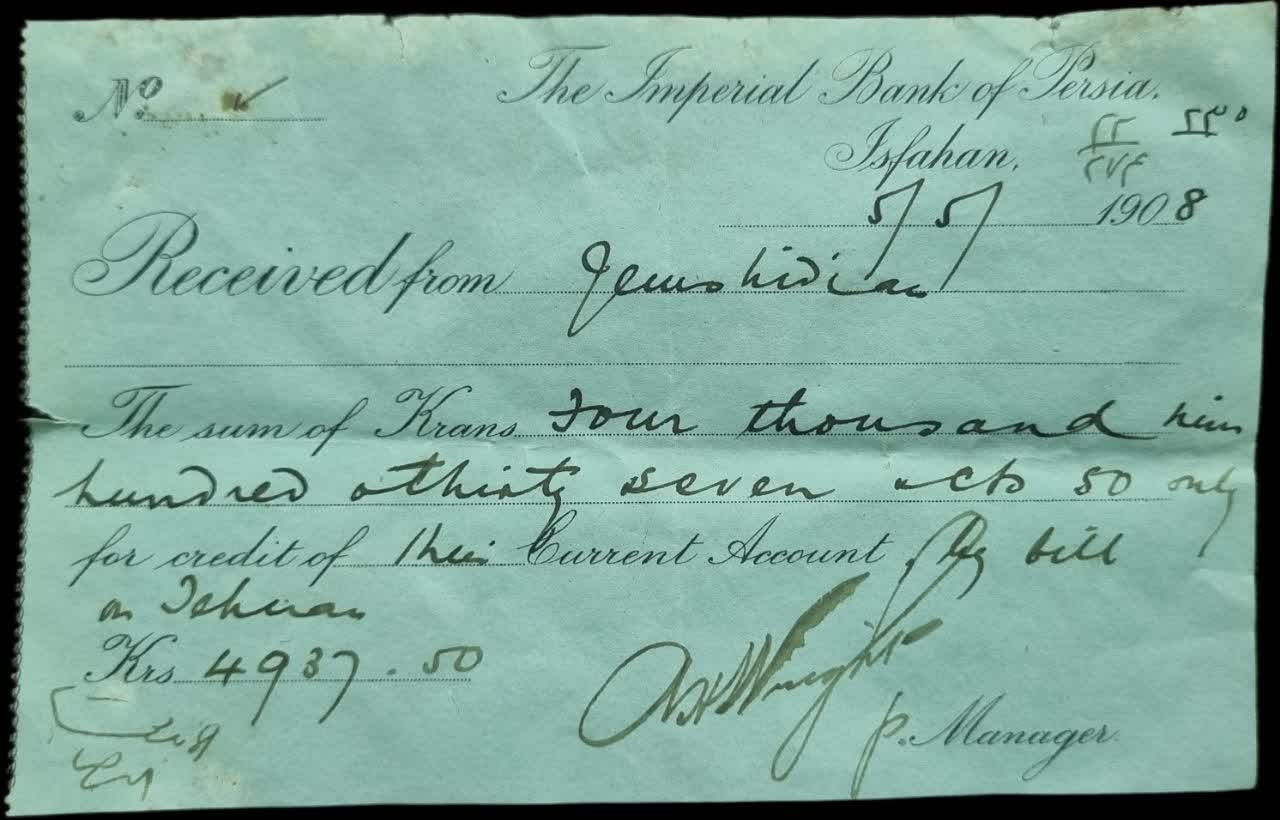 No.
The Imperial Bank of Persia.
Isfahan,
5/5/ 1908
Received from Jemshidian
The sum of Krans Four thousand nine
hundred & thirty seven & cts 50 only
for credit of their Current Account By bill
on Tehran
Krs 4937.50
Wright
p. Manager